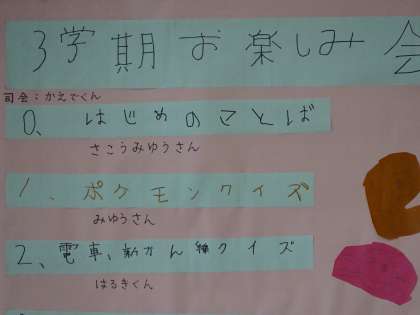 3学期お楽しみ会
司会：かえでくん
0、はじめのことば
さこうみゆうさん
1、ポケモンクイズ
みゆうさん
2、電車、新かん線クイズ
はるきくん